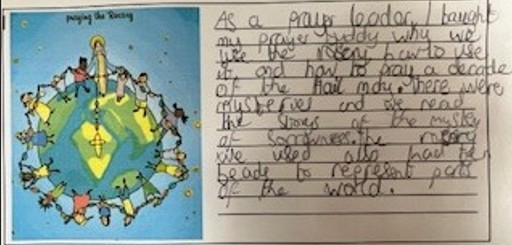 praying the Rosary
As a prayer leader, I taught
my prayer buddy why we
use the rosery how to use
it, and how to pray a decade
of the Hail mary. There were
mysteries and we read
the storys of the mystery
of Sorrowness. the rosery
we used also had ten
beads to represent parts
of the world.